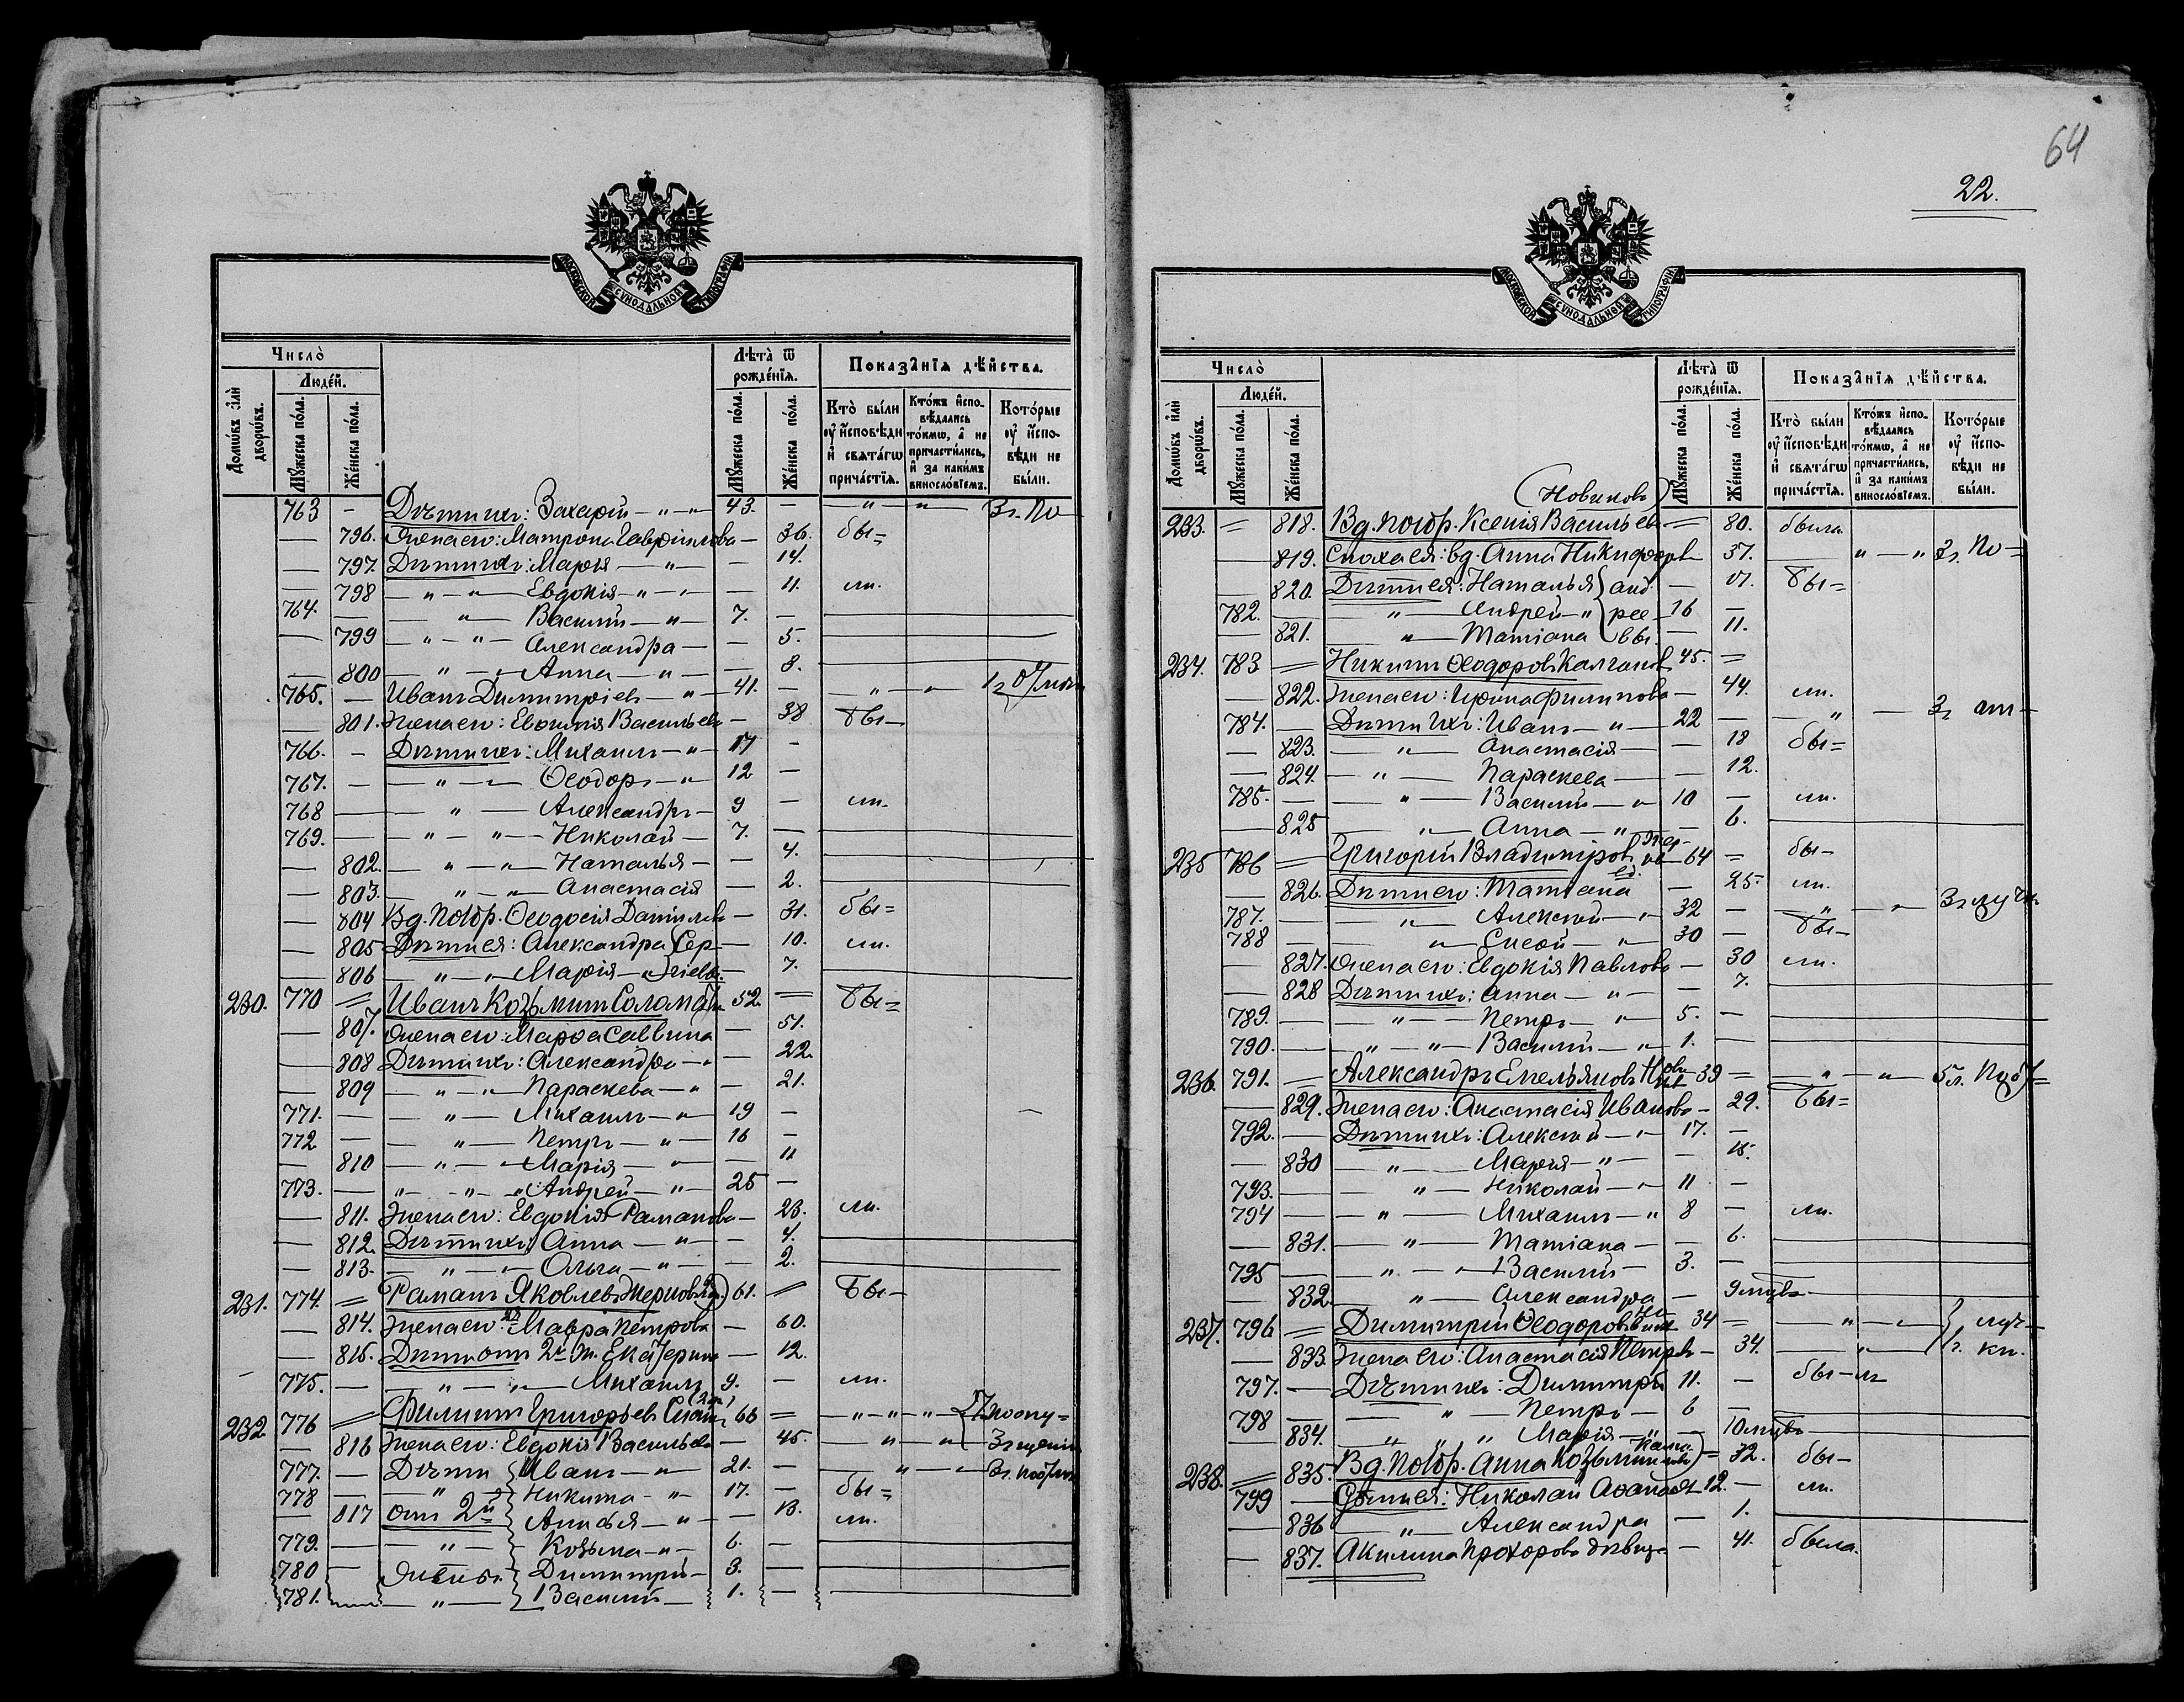 МОСКОВСКОЙ СѴНОДАЛЬНОЙ ТИПОГРАФІИ
Число̀
Людéй.
Домѡ́въ и҆лѝ дворѡ́въ.
Мꙋ́жеска по́ла.
Же́нска по́ла.
Лѣта̀ ѿ рожде́нїѧ.
Мꙋ́жеска по́ла.
Же́нска по́ла.
Показа̑нїѧ дѣ́йства.
Кто̀ бы́ли ᲂу҆ и҆́сповѣди и҆ свѧта́гѡ прича́стїѧ.
Кто́жъ и҆спо-вѣ́дались то́кмѡ, а҆ не причасти́лись, и҆ за каки́мъ винослóвїемъ.
Кото́рые ᲂу҆ и҆́спо-вѣди не бы́ли.
763 – Дѣти ихъ: Захарій – " – 43. – – " – " – 3 г. По –
– 796. Жена его: Матрона Гавріилова – 36. бы =
– 797. Дѣти ихъ: Марья – " – – 14.
– 798 – " – Евдокія – " – – 11. ли.
764. – – " – Василий – " – 7. –
– 799 – " – " – Александра – – 5.
– 800 – " – Анна – " – – 3.
765. – Иванъ Димитріев – " – 41. – – " – "
– 801. Жена его: Евфимія Васильева – 38 бы –
766. – Дѣти ихъ: Михаилъ – " – 17 –
767. – – " – Ѳеодоръ – " – 12 –
768 – – " – Александръ – 9 – ли.
769. – – " – " – Николай – 7. –
– 802. – " – " – Наталья – – 4.
– 803. – " – " – Анастасія – 2.
– 804 Вд. Побр. Ѳеодосія Данилова – 31. бы =
– 805 Дѣти ея: Александра } Сер – 10. ли.
– 806 – " – " – Марія – " } гіевы – 7.
230. 770 = Иванъ Козьминъ 52. = бы =
– 807. Жена его: Марѳа Саввина – 51.
– 808 Дѣти ихъ: Александра – " – 22.
– 809 – " – " – Параскева – " – 21.
771. – – " – Михаилъ – " – 19 –
772 – – " – Петръ – " – 16 –
– 810 – " – " – Марія – " – – 11
773. – " – " – " Андрей – " – 25 –
– 811. Жена его: Евдокія Романова – 23. ли.
– 812. Дѣти ихъ: Анна – " – – 4.
– 813. – " – " – Ольга – " – – 2.
231. 774. = Романъ Яковлевъ 61. = бы –
– 814. Жена его: 2я Мавра Петрова – 60.
– 815. Дѣти отъ 2й ж. Екатерина – 12.
775. – – " – " – Михаилъ 9. – ли.
232 776 = Филиппъ Григорьевъ 66 = – " – " – "
– 816 Жена его: Евдокія Васильева – 45. – " – "
777. – Дѣти { Иванъ – " – 21. – – " – "
778 – – " – { Никита – " – 17. – бы =
– 817 отъ 2й { Анисья – " – – 13. ли.
779. – – " – { Козьма – " – 6. –
780 – жены. { Димитрій – 3. –
781. – " – { Василий – 1. –
64
22.
МОСКОВСКОЙ СѴНОДАЛЬНОЙ ТИПОГРАФІИ
Число̀
Людéй.
Домѡ́въ и҆лѝ дворѡ́въ.
Мꙋ́жеска по́ла.
Же́нска по́ла.
Лѣта̀ ѿ рожде́нїѧ.
Мꙋ́жеска по́ла.
Же́нска по́ла.
Показа̑нїѧ дѣ́йства.
Кто̀ бы́ли ᲂу҆ и҆́сповѣди и҆ свѧта́гѡ прича́стїѧ.
Кто́жъ и҆спо-вѣ́дались то́кмѡ, а҆ не причасти́лись, и҆ за каки́мъ винослóвїемъ.
Кото́рые ᲂу҆ и҆́спо-вѣди не бы́ли.
(Новикова)
233. = 818. Вд. Побр. Ксенія Васильева = 80. была
– 819. Сноха ея: вд. Анна Никифоров – 37. – " – " 3 г. По =
– 820. Дѣти ея: Наталья } анд – бы =
782. – – " – Андрей – " } рее – 16 –
– 821. – " – Татіана } вы. – 11.
234. 783 = Никита Ѳеодоровъ Калганов 45. =
– 822. Жена его: Ирина Филипова – 44. ли.
784. – Дѣти ихъ: Иванъ – " – 22 – – " –
– 823. – " – Анастасія – – 18 бы =
– 824. – " – Параскева – – 12.
785. – – " – Василий – " 10 – ли.
– 825 – " – Анна – " – – 6.
235 786 = Григорій Владиміровъ 64 = бы –
– 826. Дѣти его: Татіана – 25. ли.
787. – – " – Алексій – " 32 – – " – "
788 – – " – Елисей – " – 30 – бы –
– 827. Жена его: Евдокія Павлова – 30 ли.
– 828 Дѣти ихъ: Анна – " – – 7.
789. – – " – Петръ – " – 5. –
790. – – " – " – Василий – " 1. –
236. 791. – Александръ Емельяновъ 39 = – " – "
– 829. Жена его: Анастасія Иванова – 29. бы =
792. – Дѣти ихъ: Алексій – " 17. –
– 830 – " – Марья – " – – 15.
793. – – " – Николай – " 11 –
794 – – " – Михаилъ – " 8 – ли.
– 831. – " – Татіана – – 6.
795 – – " – " – Василий – 3. –
– 832. – " – Александра – 9 мцвъ
237. 796 = Димитрій Ѳеодоровъ 34 = – " – "
– 833. Жена его: Анастасія Петров – 34. – " –
797. – Дѣти ихъ: Димитрій 11. – бы – ли
798 – – " – Петръ – 6 –
– 834. " " " Марія – " – 10 мцвъ
238. = 835. Вд. Побр. Анна Козьмин = 32. бы –
799 – Дѣти ея: Николай 12. – ли.
– 836 – " – Александра – 1.
– 837. Акилина Прохорова дѣвица – 41. была.